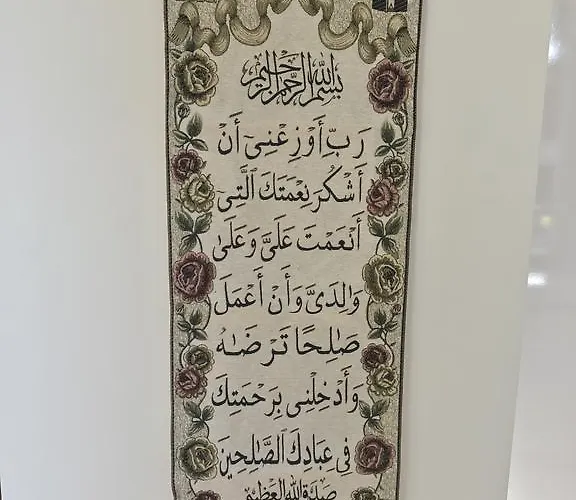 بسم الله الرحمن الرحيم
رَبِّ أَوْزِعْنِىٓ أَنْ
أَشْكُرَ نِعْمَتَكَ ٱلَّتِىٓ
أَنْعَمْتَ عَلَىَّ وَعَلَىٰ
وَٰلِدَىَّ وَأَنْ أَعْمَلَ
صَٰلِحًا تَرْضَىٰهُ
وَأَدْخِلْنِى بِرَحْمَتِكَ
فِى عِبَادِكَ ٱلصَّٰلِحِينَ
صدق الله العظيم